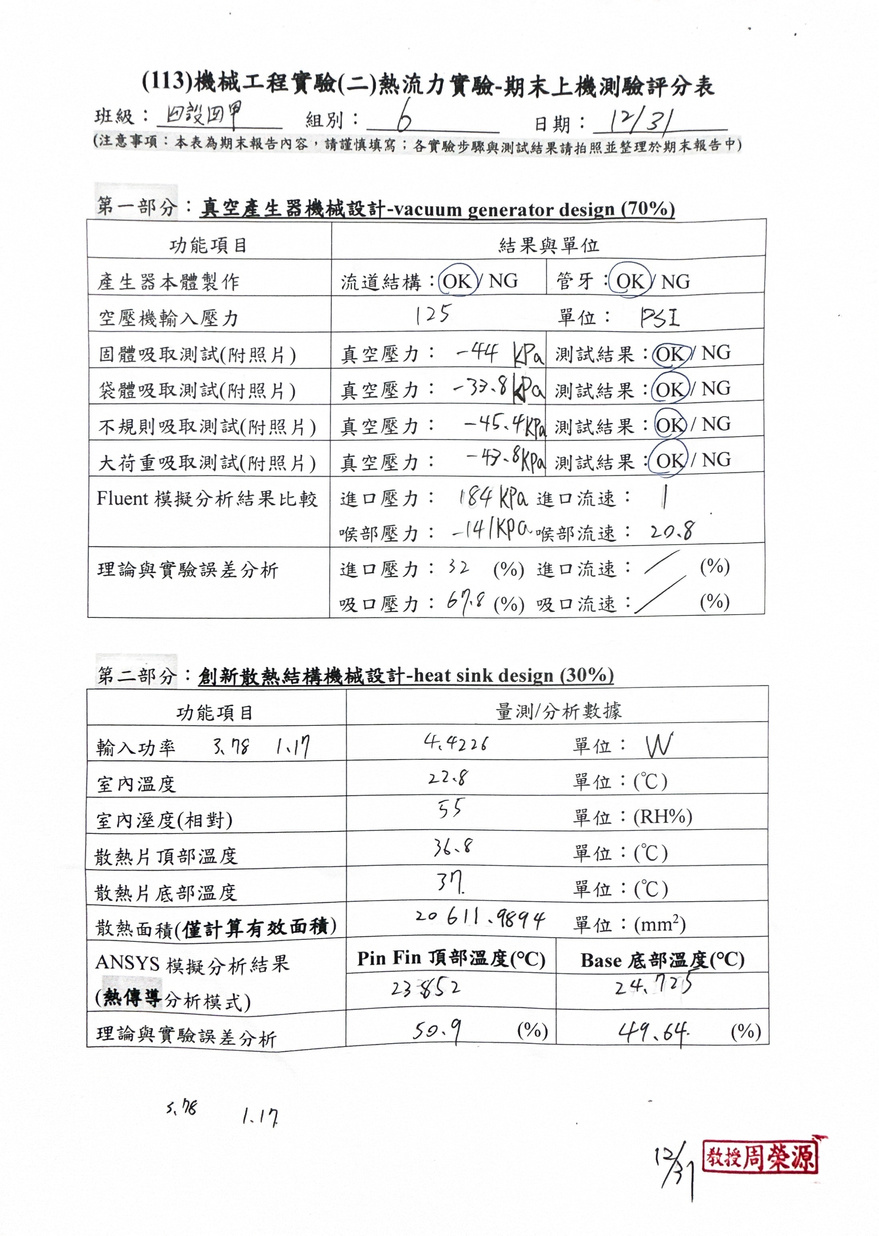 (113)機械工程實驗(二)熱流力實驗-期末上機測驗評分表
班級： 四設四甲 組別： 6 日期： 12/31
(注意事項：本表為期末報告內容，請謹慎填寫；各實驗步驟與測試結果請拍照並整理於期末報告中)
第一部分：真空產生器機械設計-vacuum generator design (70%)
功能項目 結果與單位
產生器本體製作 流道結構：OK / NG 管牙：OK / NG
空壓機輸入壓力 125 單位： PSI
固體吸取測試(附照片) 真空壓力： -44 kPa 測試結果：OK / NG
袋體吸取測試(附照片) 真空壓力： -33.8 kPa 測試結果：OK / NG
不規則吸取測試(附照片) 真空壓力： -45.4 kPa 測試結果：OK / NG
大荷重吸取測試(附照片) 真空壓力： -43.8 kPa 測試結果：OK / NG
Fluent 模擬分析結果比較 進口壓力： 184 kPa 進口流速： 1
喉部壓力： -141 kPa 喉部流速： 20.8
理論與實驗誤差分析 進口壓力： 32 (%) 進口流速： / (%)
吸口壓力： 67.8 (%) 吸口流速： / (%)
第二部分：創新散熱結構機械設計-heat sink design (30%)
功能項目 量測/分析數據
輸入功率 3.78 1.17 4.4226 單位： W
室內溫度 22.8 單位：(℃)
室內溼度(相對) 55 單位：(RH%)
散熱片頂部溫度 36.8 單位：(℃)
散熱片底部溫度 37. 單位：(℃)
散熱面積(僅計算有效面積) 20611.9894 單位：(mm²)
ANSYS 模擬分析結果 Pin Fin 頂部溫度(℃) Base 底部溫度(℃)
(熱傳導分析模式) 23.852 24.725
理論與實驗誤差分析 50.9 (%) 49.64 (%)
3.78 1.17
12/31 教授周榮源